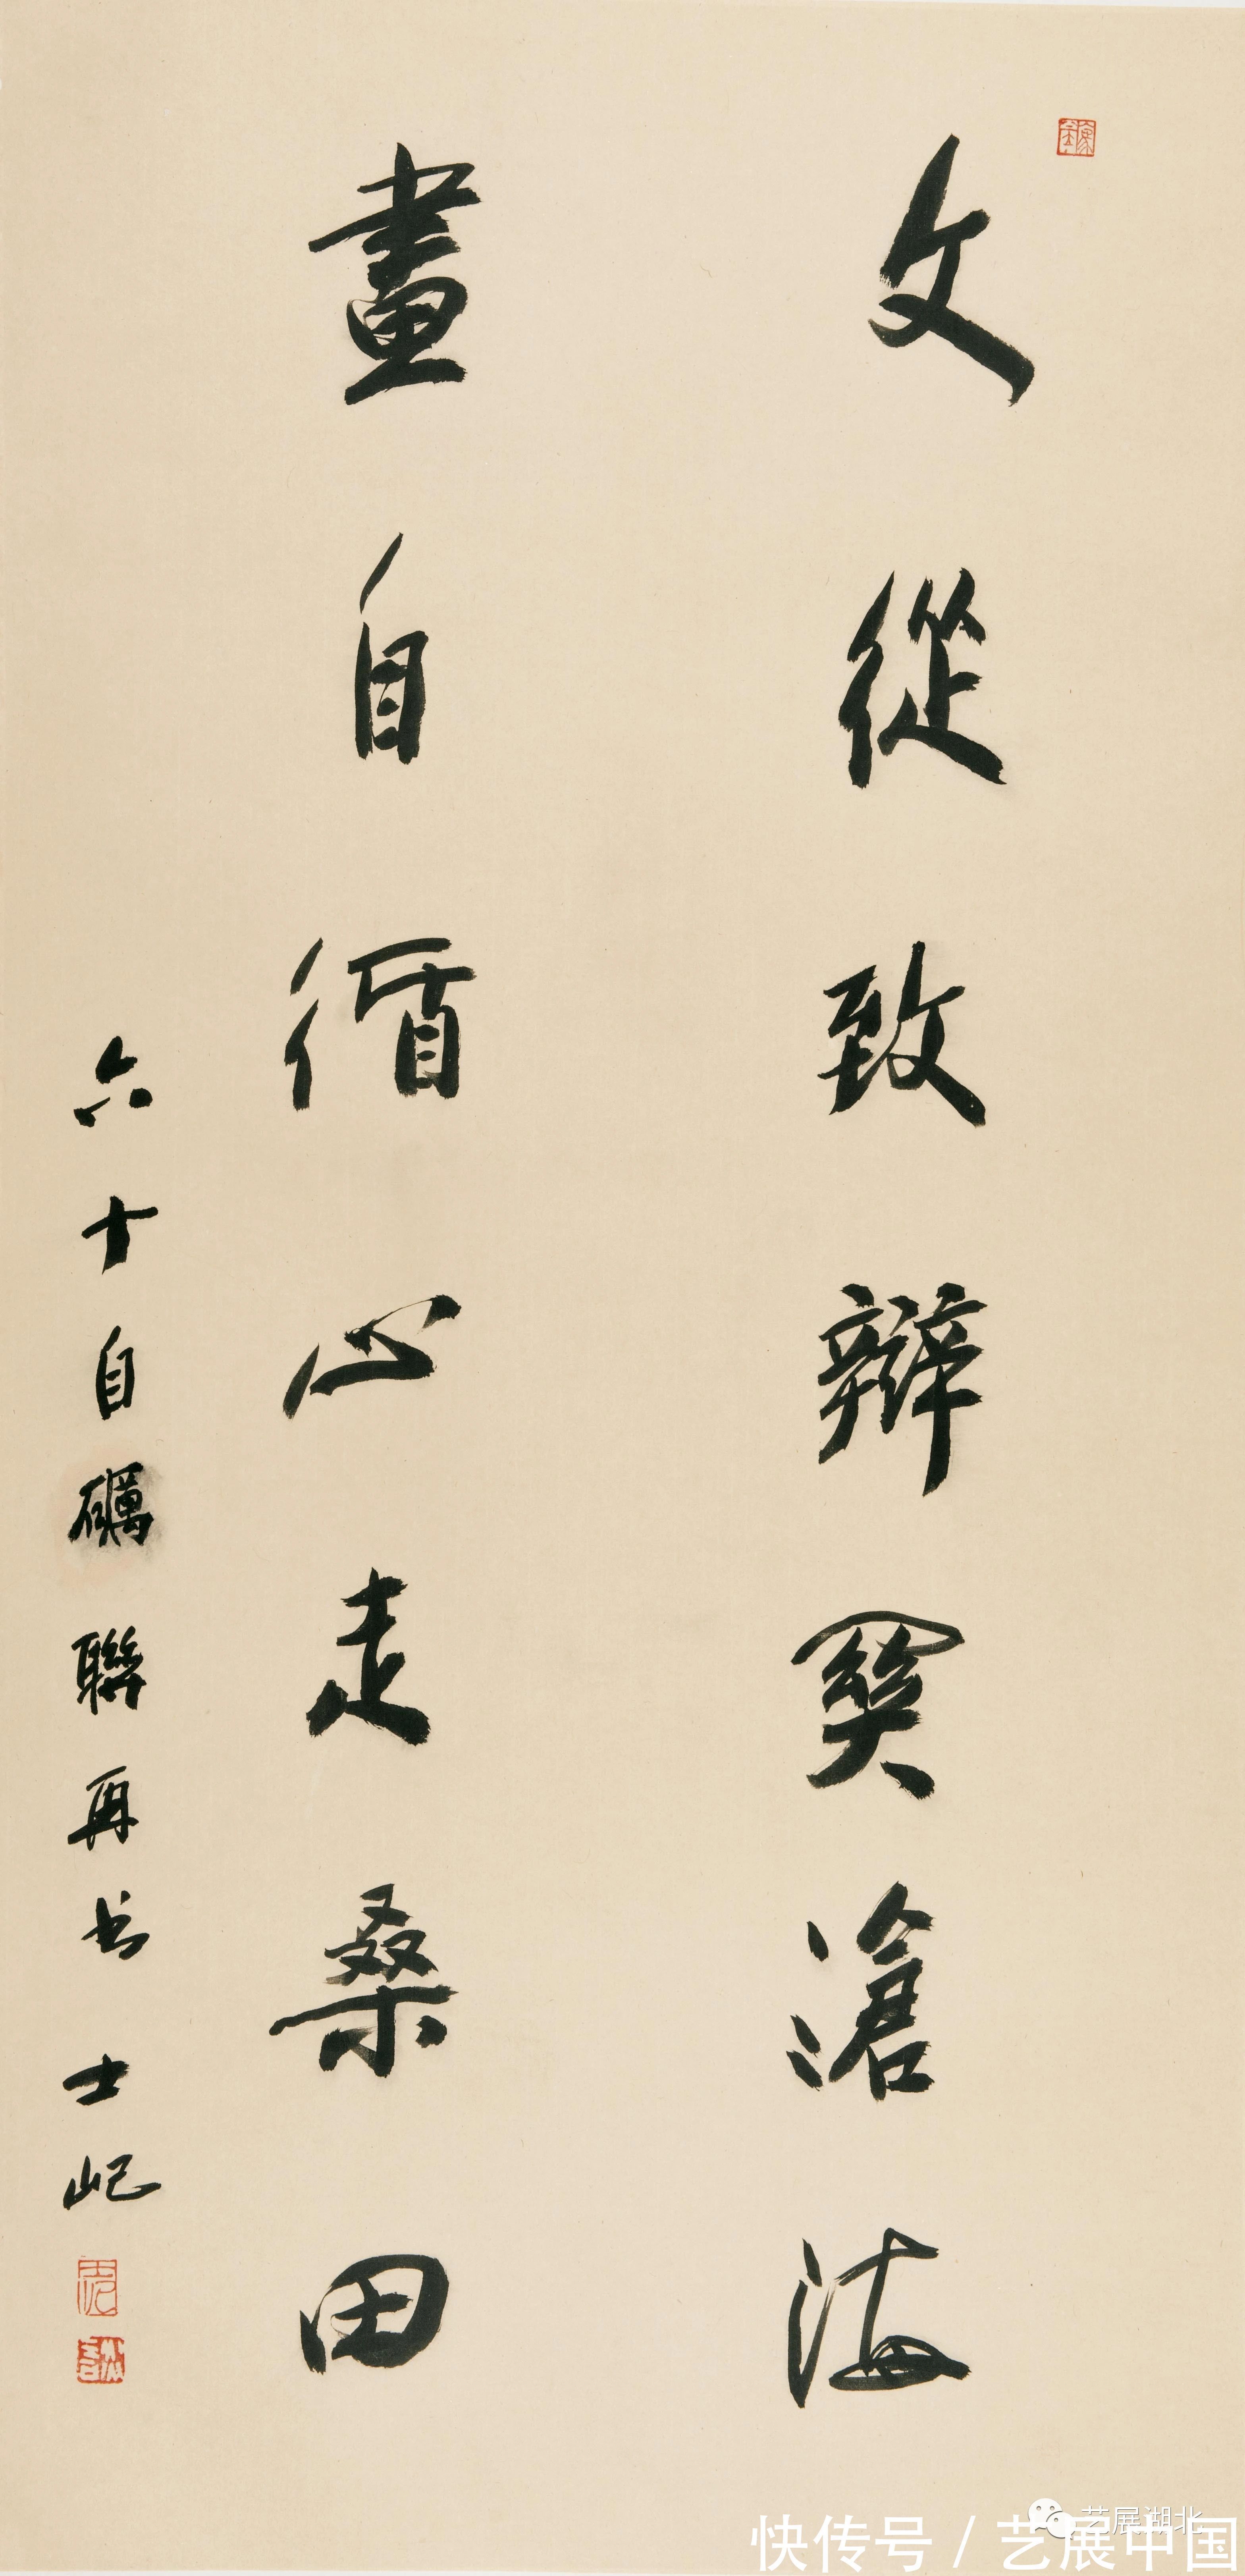 文從致辯奥滄海
畫自循心走桑田
六十自礪聯再书 士屺
艺展湖北
快传号/艺展中国